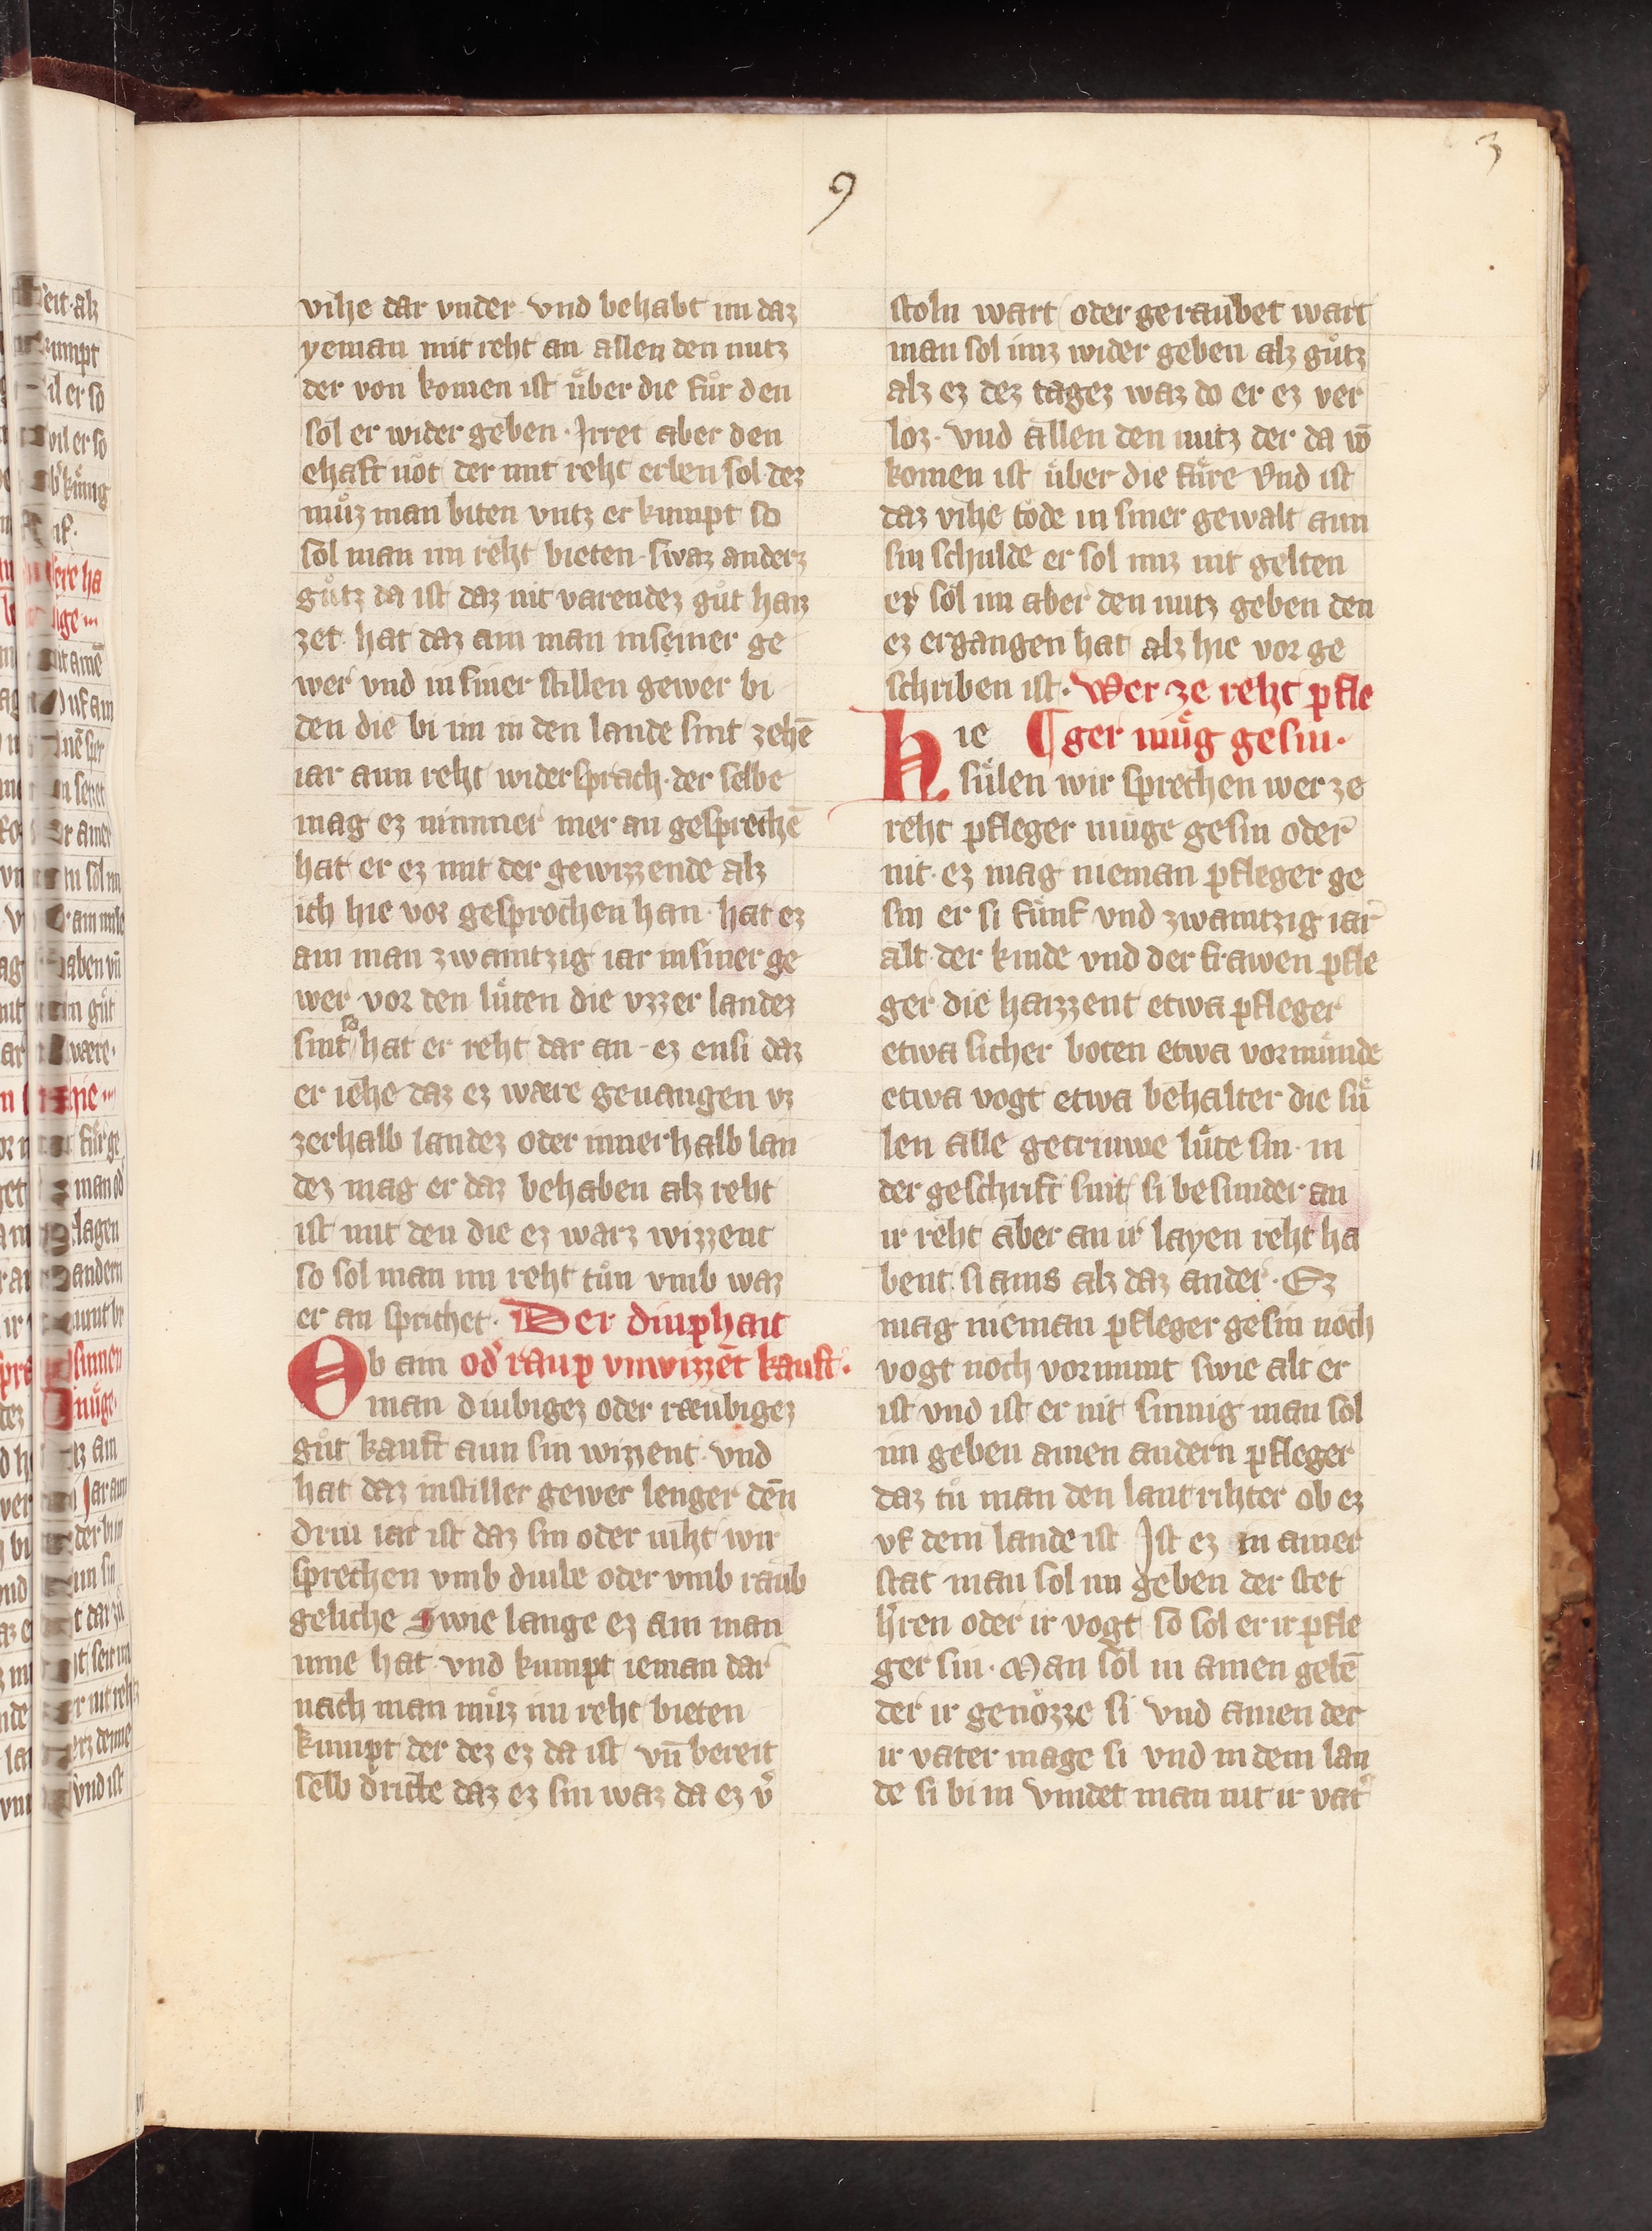 3
9
vihe dar vnder vnd behabt im daz
yeman mit reht an allen den nutz
der von komen ist uͤber die fuͦr den
sol er wider geben · Irret aber den
ehaft not der mit reht erben sol dez
muͦz man biten vntz er kumpt so
sol man im reht bieten · swaz anderz
guͦtz da ist daz nit varendez guͦt haiz
zet hat daz ain man in seiner ge
wer vnd in siner stillen gewer bi
den die bi im in den lande sint zehē
iar aun reht widersprach · der selbe
mag ez nimmer mer an gesprechē
hat er ez mit der gewizzende alz
ich hie vor gesprochen han · hat ez
ain man zwaintzig iar in siner ge
wer vor den luͤten die vzzer landez
sint so hat er reht dar an · ez ensi daz
er iehe daz ez wære geuangen vz
zerhalb landez oder innerhalb lan
dez mag er daz behaben alz reht
ist mit den die ez warz wizzent
so sol man im reht tuͦn vmb waz
er an sprichet · Der diuphait
Ob ain od' raup vnwizzēt kauft ·
man diubigez oder ræubigez
guͦt kauft aun sin wizzent · vnd
hat daz in stiller gewer lenger dēn
driu iar ist daz sin oder niht wir
sprechen vmb diube oder vmb raub
geliche Swie lange ez ain man
inne hat · vnd kumpt ieman dar
nach man muͦz im reht bieten
kumpt der dez ez da ist vn̄ bereit
selb dritte daz ez sin waz da ez v'
stoln wart oder geraubet wart
man sol imz wider geben alz guͦtz
alz ez dez tagez waz do er ez ver
loz · vnd allen den nutz der da vō
komen ist uͤber die fuͤre vnd ist
daz vihe tode in siner gewalt aun
sin schulde er sol imz nit gelten
er sol im aber den nutz geben den
ez ergangen hat alz hie vor ge
schriben ist · Wer ze reht pfle
Hie ¶ ger muͤg gesin ·
suͤlen wir sprechen wer ze
reht pfleger muͤge gesin oder
nit · ez mag nieman pfleger ge
sin er si fuͤnf vnd zwaintzig iar
alt · der kinde vnd der frawen pfle
ger die haizzent etwa pfleger
etwa sicher boten etwa vormuͤnde
etwa vogt etwa behalter die suͤ
len alle getriuwe luͤte sin · in
der geschrift sint si besunder an
ir reht aber an ir layen reht ha
bent si ains alz daz ander · Ez
mag nieman pfleger gesin noch
vogt noch vormunt swie alt er
ist vnd ist er nit sinnig man sol
im geben ainen andern pfleger
daz tuͦ man den lantrihter ob ez
vf dem lande ist Ist ez in ainer
stat man sol im geben der stet
h'ren oder ir vogt so sol er ir pfle
ger sin · Man sol in ainen gebē
der ir genozze si vnd ainen der
ir vater mage si vnd in dem lan
de si bi in vindet man nit ir vat'